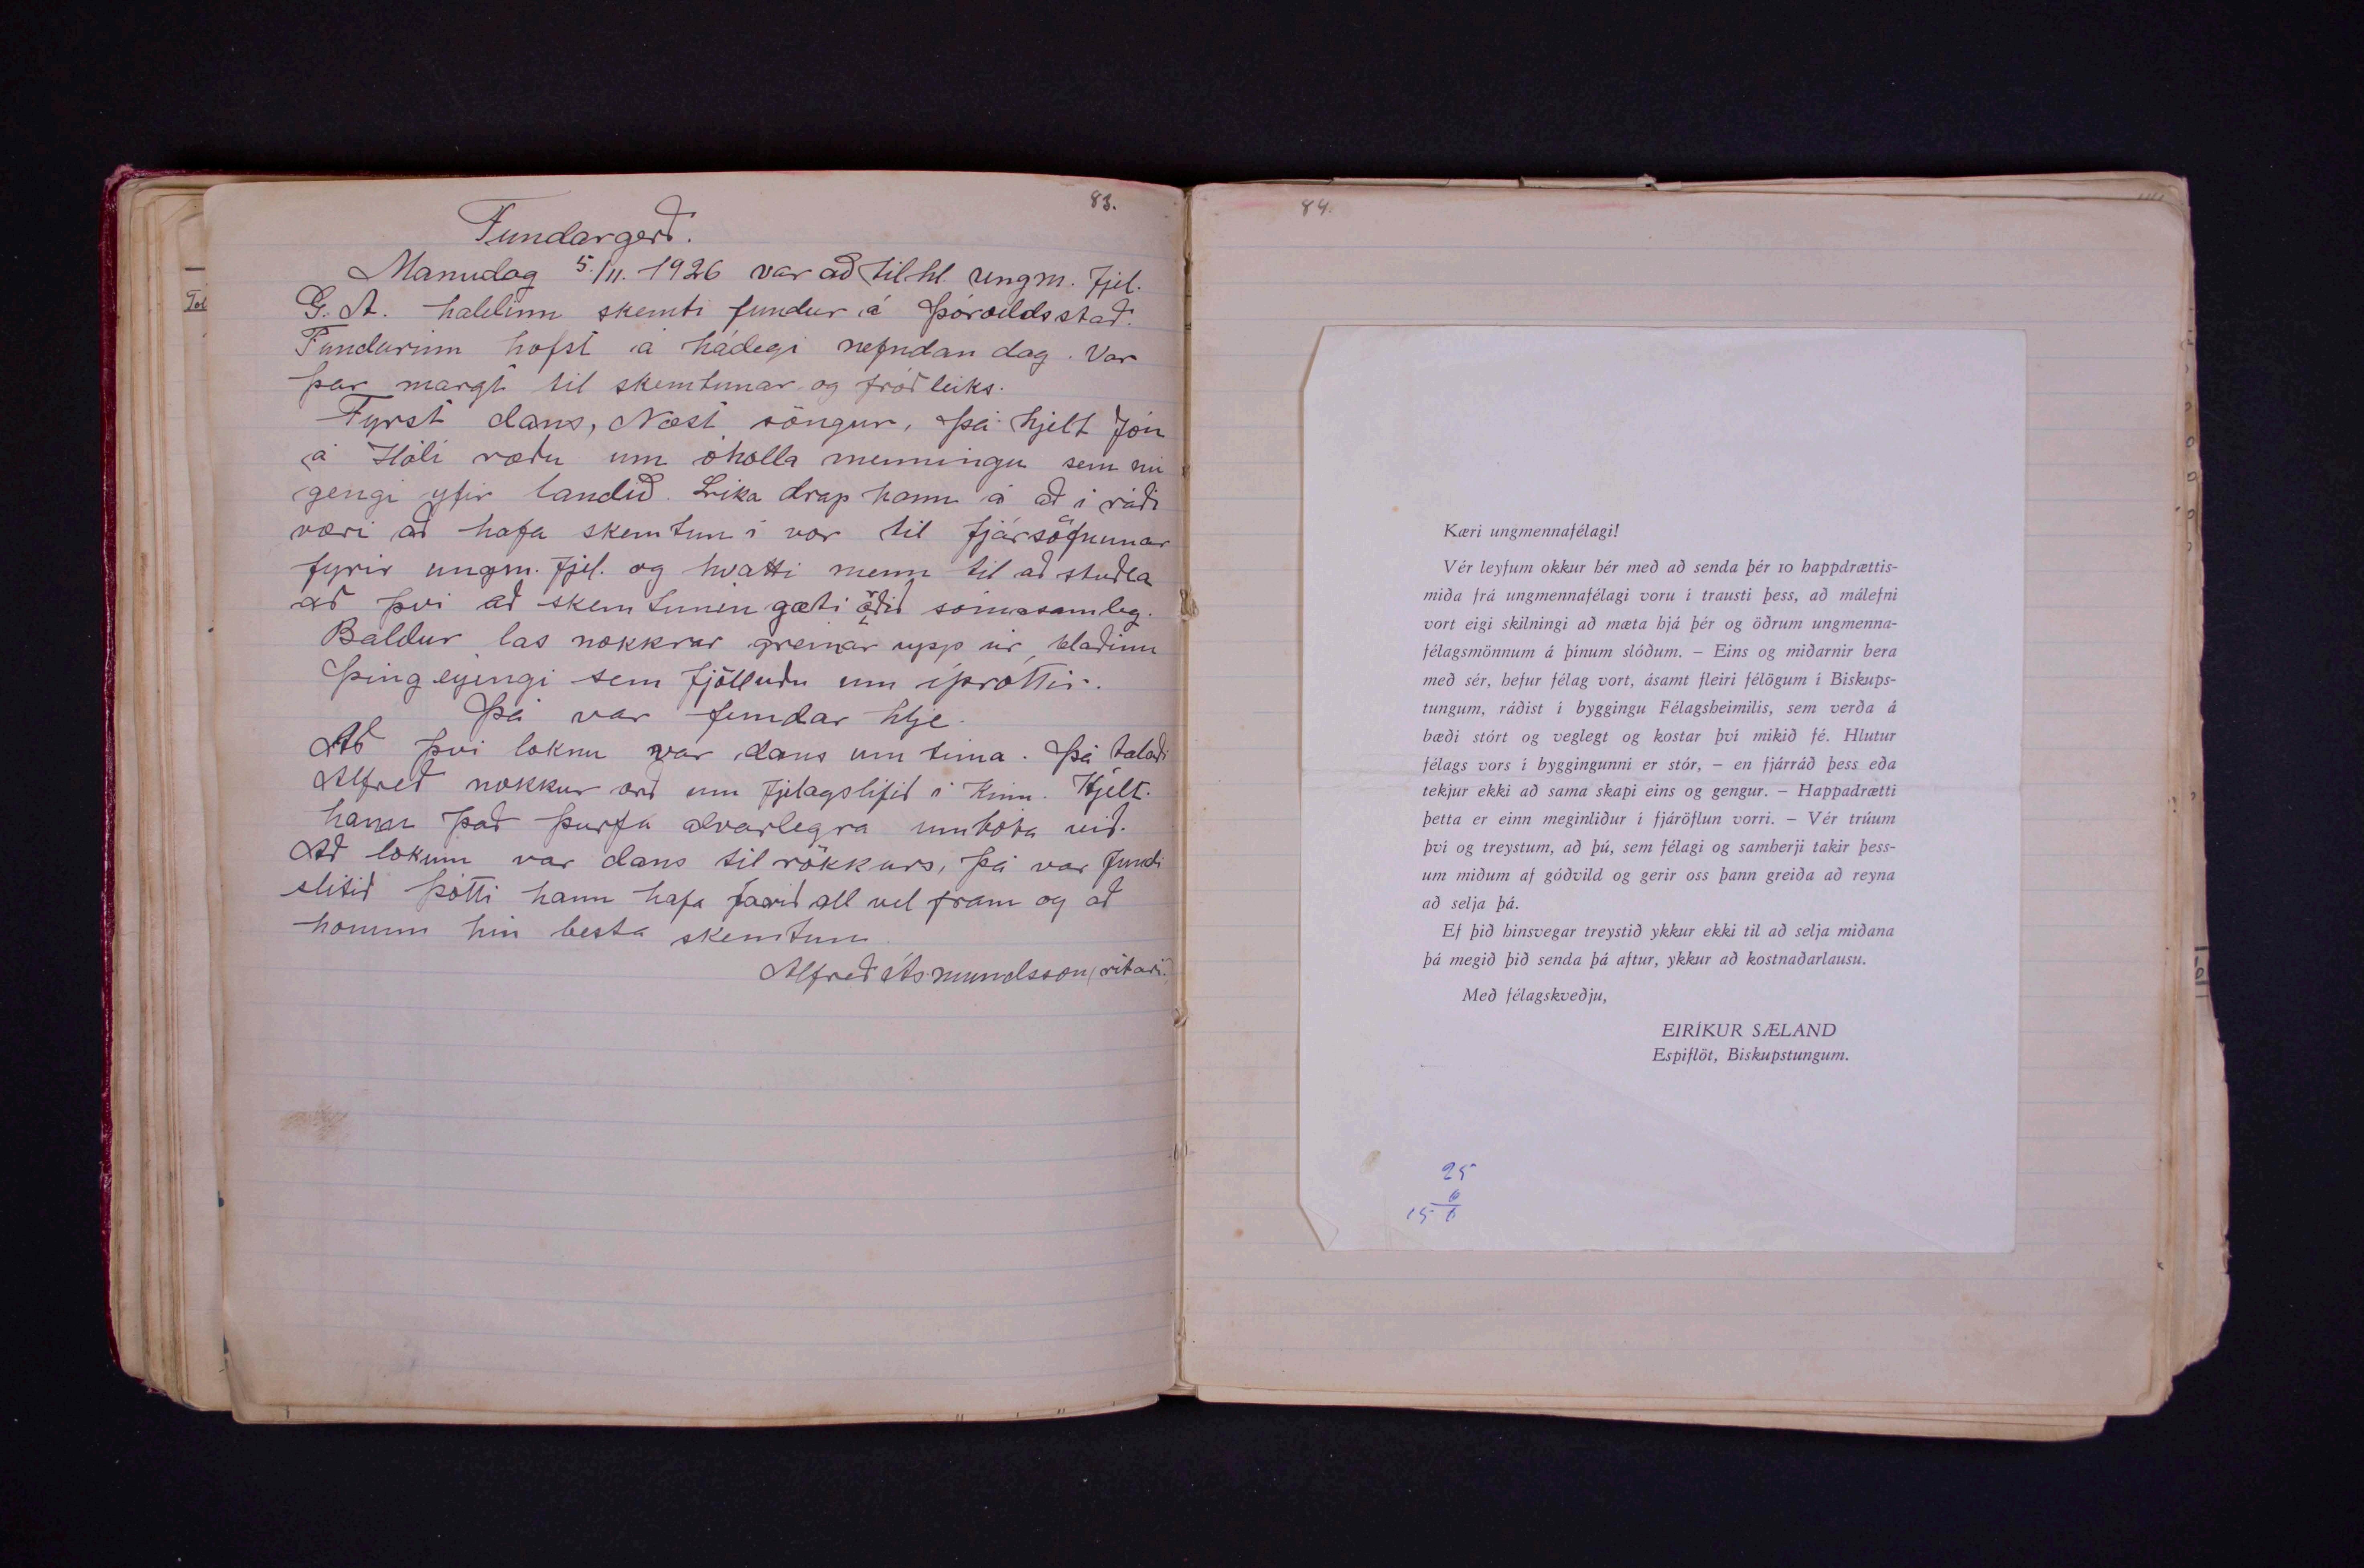 83.
Fundargerð.
Manudag 5./11. 1926 var að tilhl. ungm. fjel.
G. A. haldinn skemti fundur á Þóroddsstað.
Fundurinn hofst á hádegi nefndan dag. Var
þar margt til skemtunar og fróðleiks.
Fyrst dans, Næst söngur, þá hjelt Jón
á Hóli ræðu um óholla menningu sem nú
gengi yfir landið. Líka drap hann á að í ráði
væri að hafa skemtun í vor til fjársöfnunar
fyrir ungm. fjel. og hvatti menn til að stuðla
að þvi að skemtunin gæti orðið sómasamleg.
Baldur las nokkrar greinar upp úr blaðinu
Þingeyingi sem fjölluðu um íþróttir.
Þá var fundar hlje.
Að þvi loknu var dans um tíma. Þá talaði
Alfreð nokkur orð um fjelagslífið í Kinn. Hjelt
hann það þurfa alvarlegra umbóta við.
Að lokum var dans til rökkurs, þá var fundi
slitið þótti hann hafa farið all vel fram og að
honum hin besta skemtun.
Alfreð Ásmundsson (ritari)
84.
Kæri ungmennafélagi!
Vér leyfum okkur hér með að senda þér 10 happdrættis-
miða frá ungmennafélagi voru í trausti þess, að málefni
vort eigi skilningi að mæta hjá þér og öðrum ungmenna-
félagsmönnum á þínum slóðum. – Eins og miðarnir bera
með sér, hefur félag vort, ásamt fleiri félögum í Biskups-
tungum, ráðist í byggingu Félagsheimilis, sem verða á
bæði stórt og veglegt og kostar því mikið fé. Hlutur
félags vors í byggingunni er stór, – en fjárráð þess eða
tekjur ekki að sama skapi eins og gengur. – Happadrætti
þetta er einn meginliður í fjáröflun vorri. – Vér trúum
því og treystum, að þú, sem félagi og samherji takir þess-
um miðum af góðvild og gerir oss þann greiða að reyna
að selja þá.
Ef þið hinsvegar treystið ykkur ekki til að selja miðana
þá megið þið senda þá aftur, ykkur að kostnaðarlausu.
Með félagskveðju,
EIRÍKUR SÆLAND
Espiflöt, Biskupstungum.
25
6